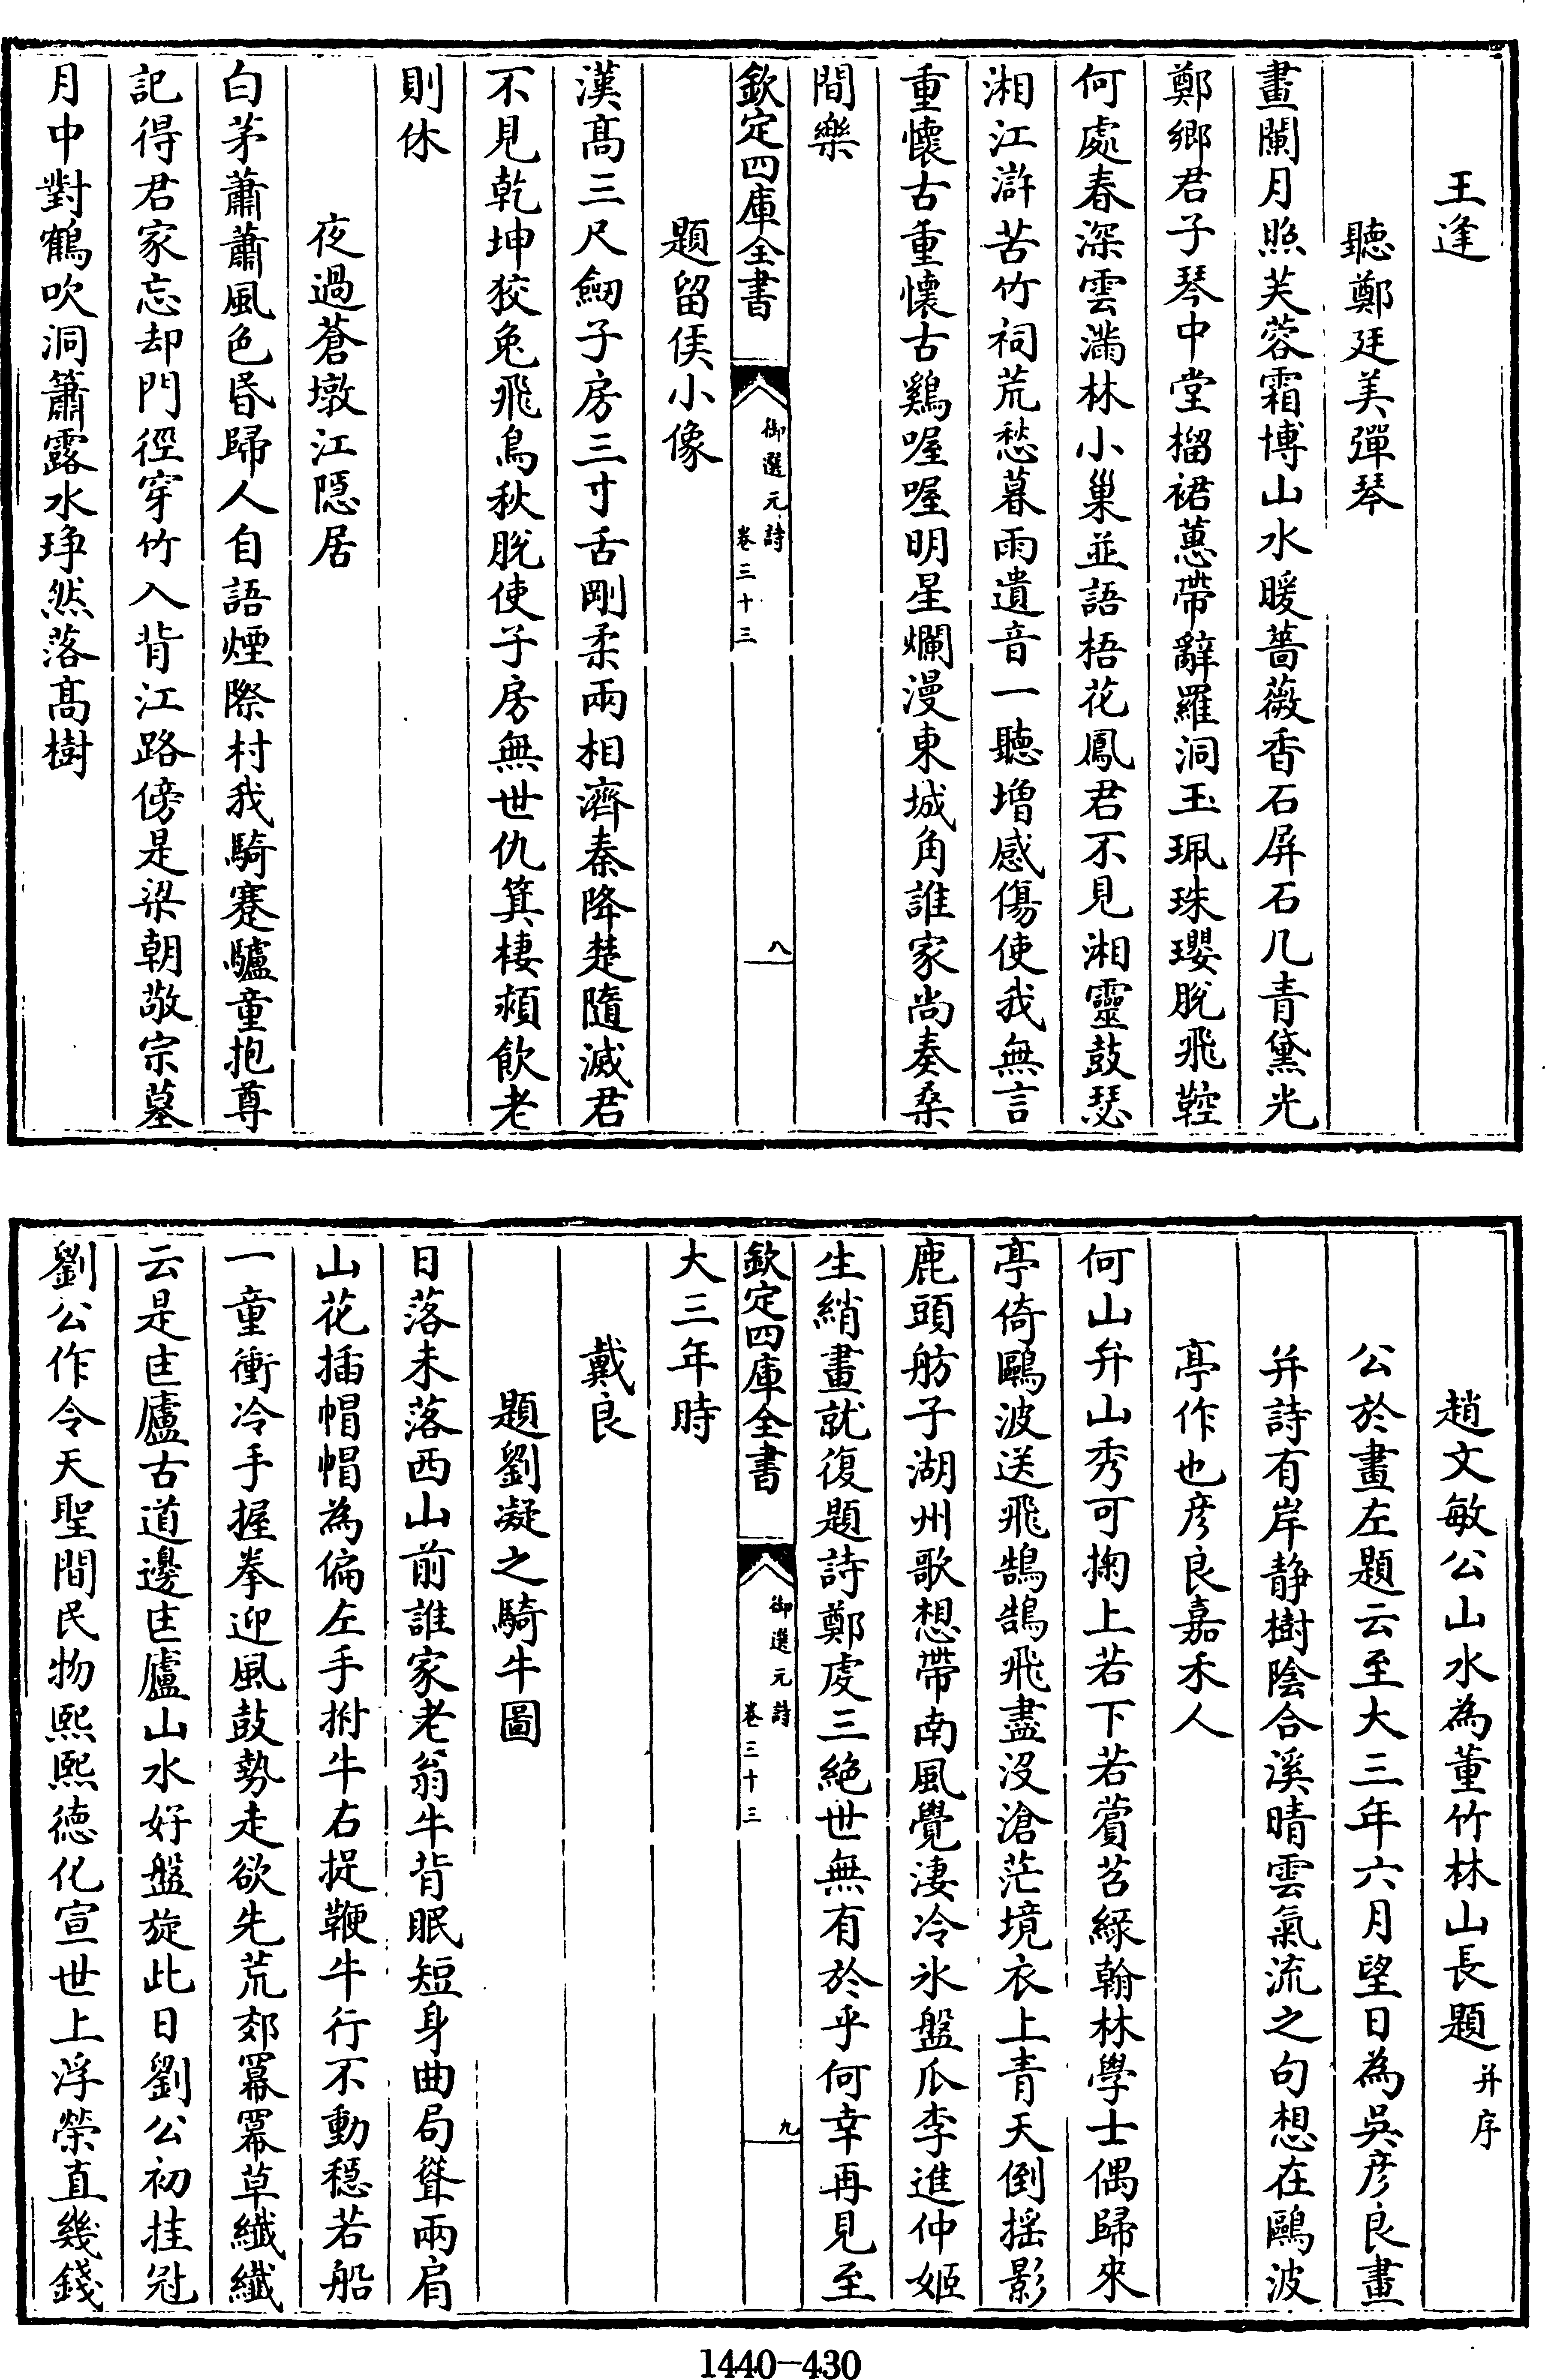 王逢
聽鄭廷美彈琴
畫闌月照芙蓉霜博山水暖薔薇香石屏石几青黛光
鄭鄉君子琴中堂榴裙蕙帶辭羅洞玉珮珠瓔脫飛鞚
何處春深雲滿林小巢並語梧花鳳君不見湘靈鼓瑟
湘江滸苦竹祠荒愁暮雨遺音一聽增感傷使我無言
重懷古重懷古鷄喔喔明星爛漫東城角誰家尚奏桑
間樂
欽定四庫全書
御選元詩
卷三十三
八
題留侯小像
漢髙三尺劒子房三寸舌剛柔兩相濟秦降楚隨滅君
不見乾坤狡兔飛鳥秋脫使子房無世仇箕棲潁飲老
則休
夜過蒼墩江隱居
白茅蕭蕭風色昏歸人自語煙際村我騎蹇驢童抱尊
記得君家忘却門徑穿竹入背江路傍是梁朝敬宗墓
月中對鶴吹洞簫露水琤然落髙樹
趙文敏公山水為董竹林山長題并序
公於畫左題云至大三年六月望日為吳彦良畫
并詩有岸静樹陰合溪晴雲氣流之句想在鷗波
亭作也彦良嘉禾人
何山弁山秀可掬上若下若蓂苕綠翰林學士偶歸來
亭倚鷗波送飛鵠鵠飛盡沒滄茫境衣上青天倒揺影
鹿頭舫子湖州歌想帶南風覺淒冷氷盤瓜李進仲姬
生綃畫就復題詩鄭䖍三絶世無有於乎何幸再見至
欽定四庫全書
御選元詩
卷三十三
九
大三年時
戴良
題劉凝之騎牛圖
日落未落西山前誰家老翁牛背眠短身曲局聳兩肩
山花插帽帽為偏左手拊牛右捉鞭牛行不動穏若船
一童衝冷手握拳迎風鼓勢走欲先荒郊冪冪草纎纎
云是匡廬古道邊匡廬山水好盤旋此日劉公初挂冠
劉公作令天聖間民物熙熙徳化宣世上浮榮直幾錢
1440-430